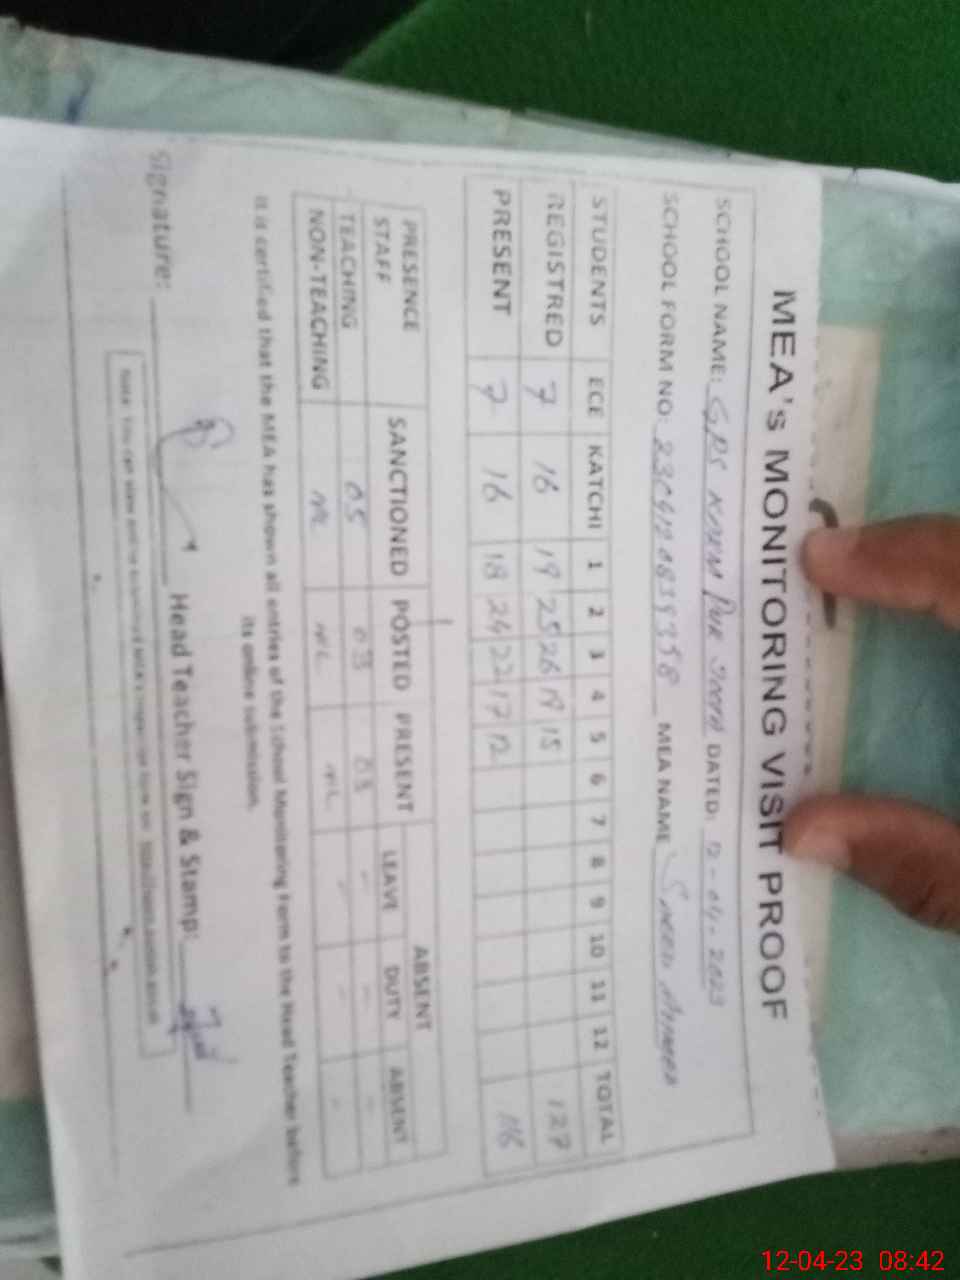 MEA's MONITORING VISIT PROOF
SCHOOL NAME: GPS DATED: 12-04-2023
SCHOOL FORM NO: MEA NAME
STUDENTS ECE KATCHI 1 2 3 4 5 6 7 8 9 10 11 12 TOTAL
REGISTRED 7 16 19 25 26 19 15 127
PRESENT 7 16 18 24 22 17 12 116
PRESENCE STAFF SANCTIONED POSTED PRESENT ABSENT
LEAVE DUTY ABSENT
TEACHING 05 03 03 - - -
NON-TEACHING NIL NIL NIL - - -
It is certified that the MEA has shown all entries of the School Monitoring Form to the Head Teacher before
its online submission.
Signature: Head Teacher Sign & Stamp:
12-04-23 08:42